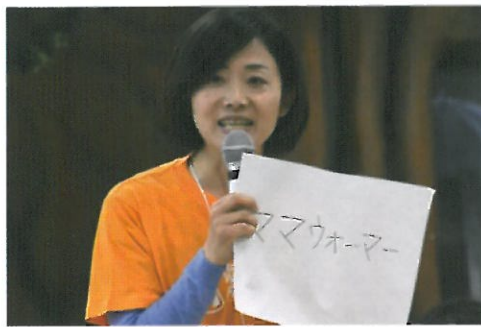 ママウォーマー